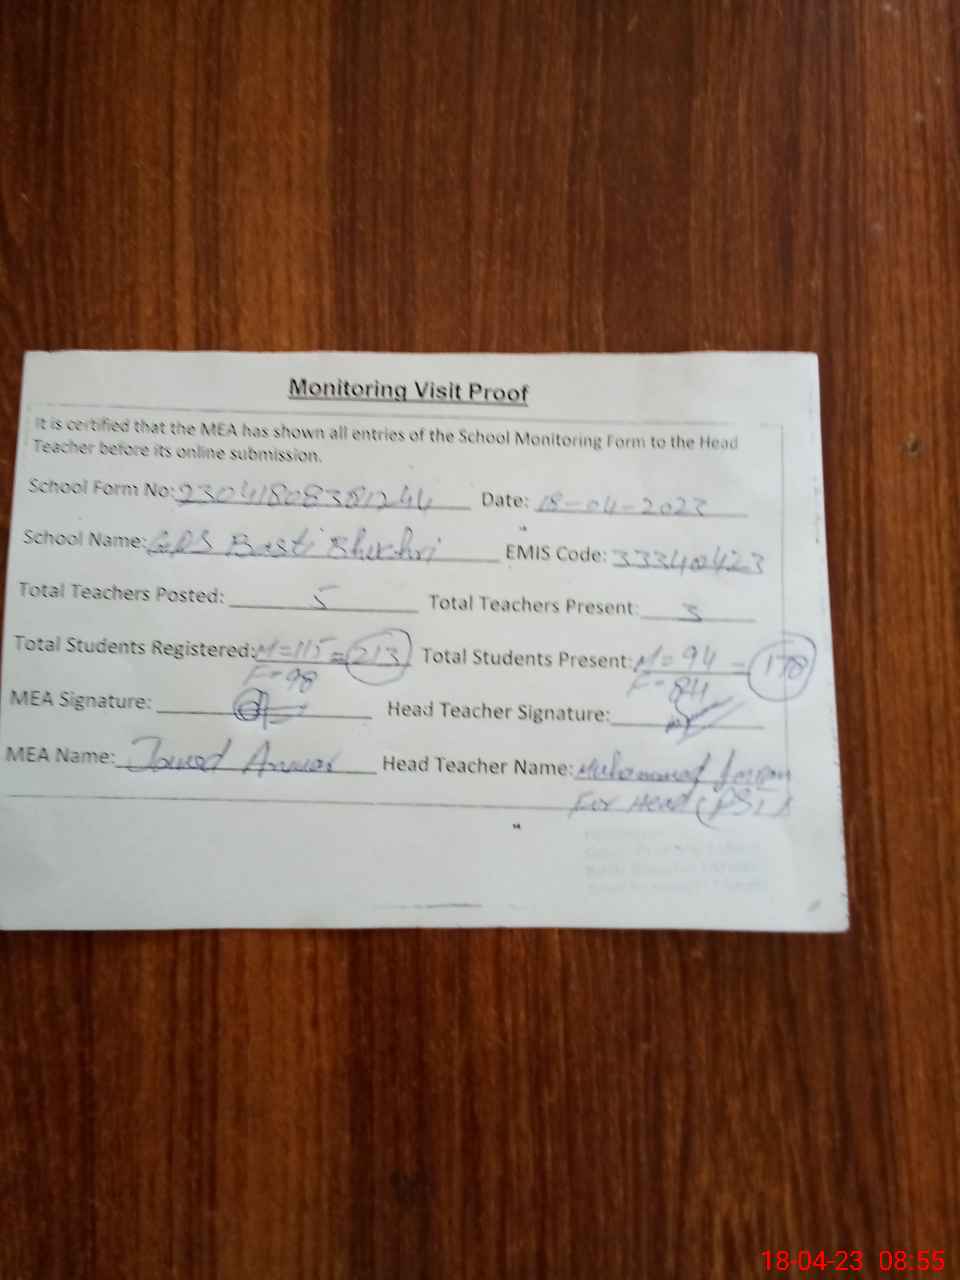 Monitoring Visit Proof
It is certified that the MEA has shown all entries of the School Monitoring Form to the Head
Teacher before its online submission.
School Form No: 23041808381244 Date: 18-04-2023
School Name: GPS Basti EMIS Code: 33340423
Total Teachers Posted: 5 Total Teachers Present: 3
Total Students Registered: M=115 = 213 Total Students Present: M=94 = 178
F=98 F=84
MEA Signature: Head Teacher Signature:
MEA Name: Jawed Anwar Head Teacher Name: Muhammad
For Head (PST)
18-04-23 08:55